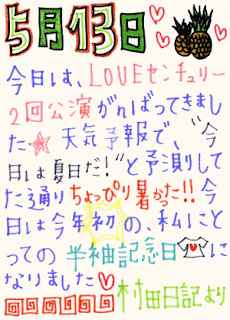 5月13日
今日は、LOVEセンチュリー
2回公演がんばってきまし
た☆天気予報で、“今
日は夏日だ!”と予測して
た通りちょっぴり暑かった!!今
日は今年初の、私にと
っての半袖記念日に
なりました♡
村田日記より